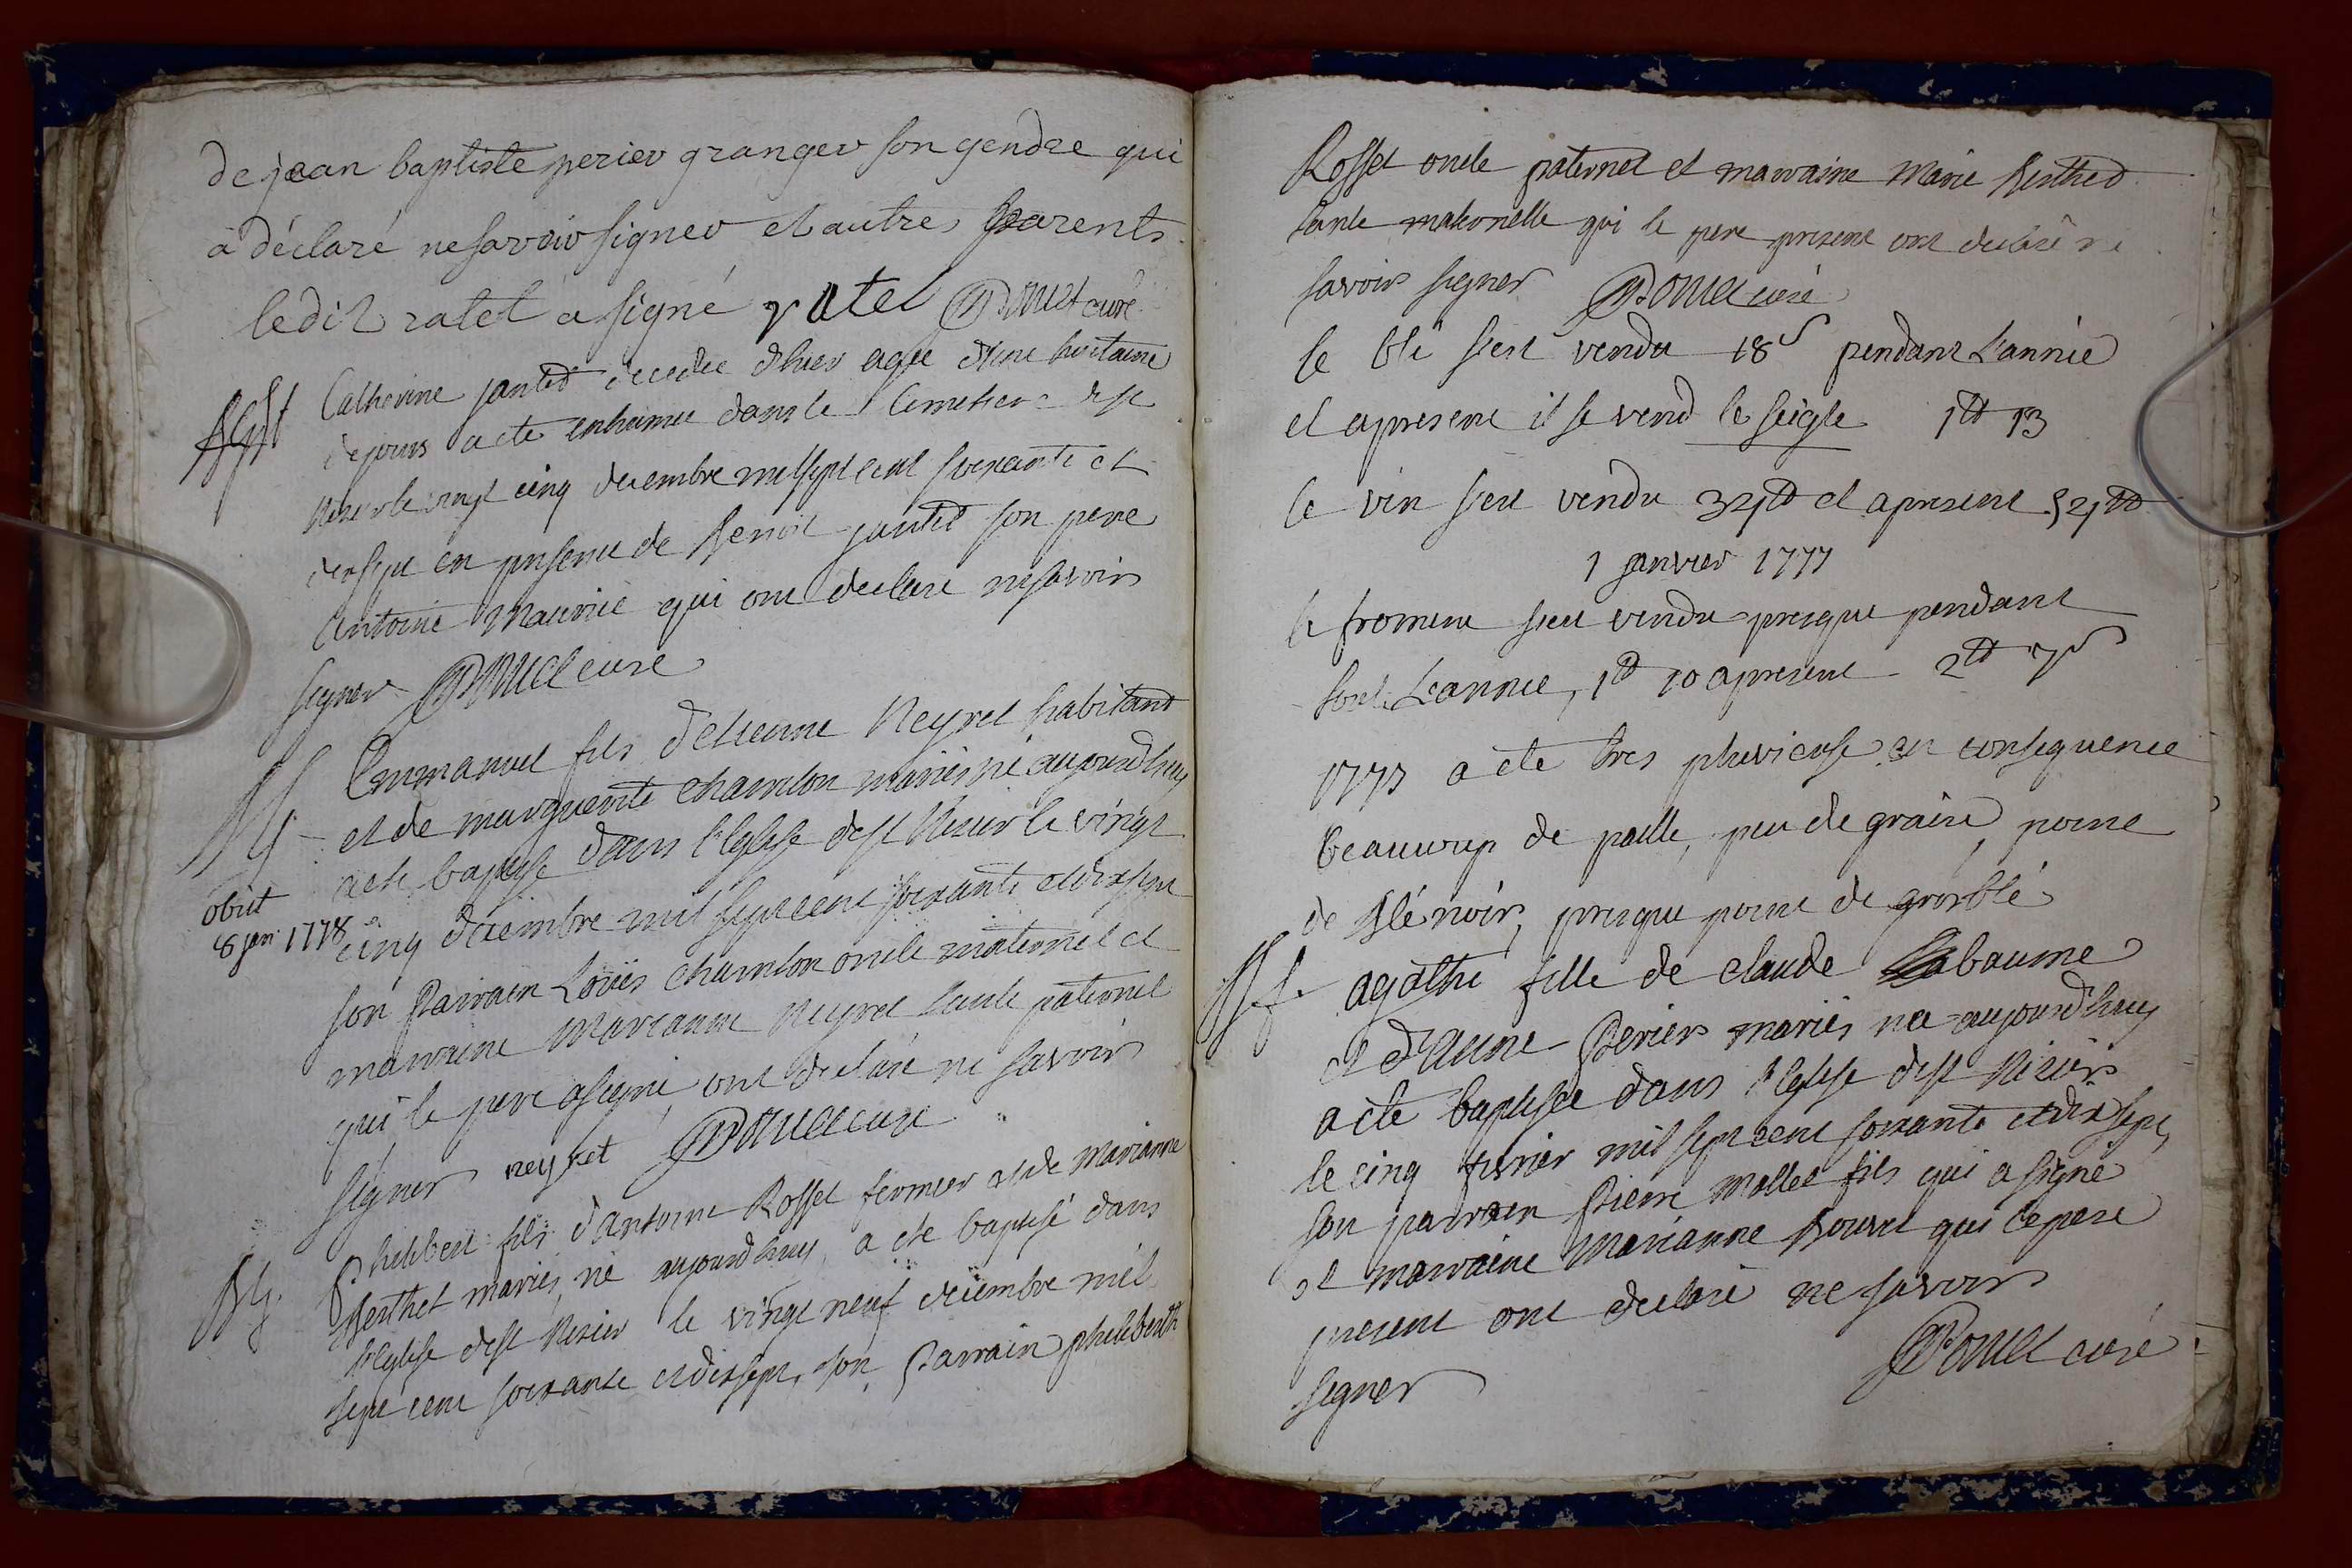 de jean baptiste perier granger son gendre qui
a déclaré ne savoir signer et autres parents
ledit ratet a signé ratet Donnet curé
Catherine jantet decedee dhier agee d'une huitaine
de jours a ete enhumee dans le Cimetiere de st
Nizier le vingt cinq decembre mil sept cent soixante et
dix sept en presence de Benoit jantet son pere
Antoine Maurice qui ont declare ne savoir
signer Donnet curé
Emmanuel fils d'etienne Neyret habitant
et de marguerite chambon mariés né aujourdhuy
a ete baptisé dans l'Eglise de st Nizier le vingt
obiit
8 jan. 1778
cinq decembre mil sept cent soixante et dix sept
son Parrain Loüis chambon oncle maternel et
marraine Marianne Neyret tante paternel
qui le pere a signé ont declaré ne savoir
signer neyret Donnet curé
Philibert fils d'antoine Rosset fermier et de Marianne
Berthet mariés né aujourdhuy a ete baptisé dans
l'Eglise de st Nizier le vingt neuf decembre mil
sept cent soixante et dix sept, son Parrain philebert
Rosset oncle paternel et marraine Marie Berthet
tante maternelle qui le pere present ont declaré ne
savoir signer Donnet curé
le blé s'est vendu 18s pendant L'année
et apresent il se vend le seigle 1tt 13
le vin s'est vendu 32tt et apresent 52tt
1 janvier 1777
le froment s'est vendu presque pendant
tout L'année, 1tt 10 apresent 2tt 7s
1777 a ete tres pluvieuse en consequence
beaucoup de paille, peu de graine, point
de blé noir, presque point de gros blé
agathe fille de claude Labaume
et d'anne Perier mariés nee aujourdhuy
a ete baptisée dans l'Eglise de st Nizier
le cinq fevrier mil sept cent soixante et dix sept,
son parrain Pierre Mollet fils qui a signé
et marraine Marianne qui le pere
present ont declaré ne savoir
signer Donnet curé